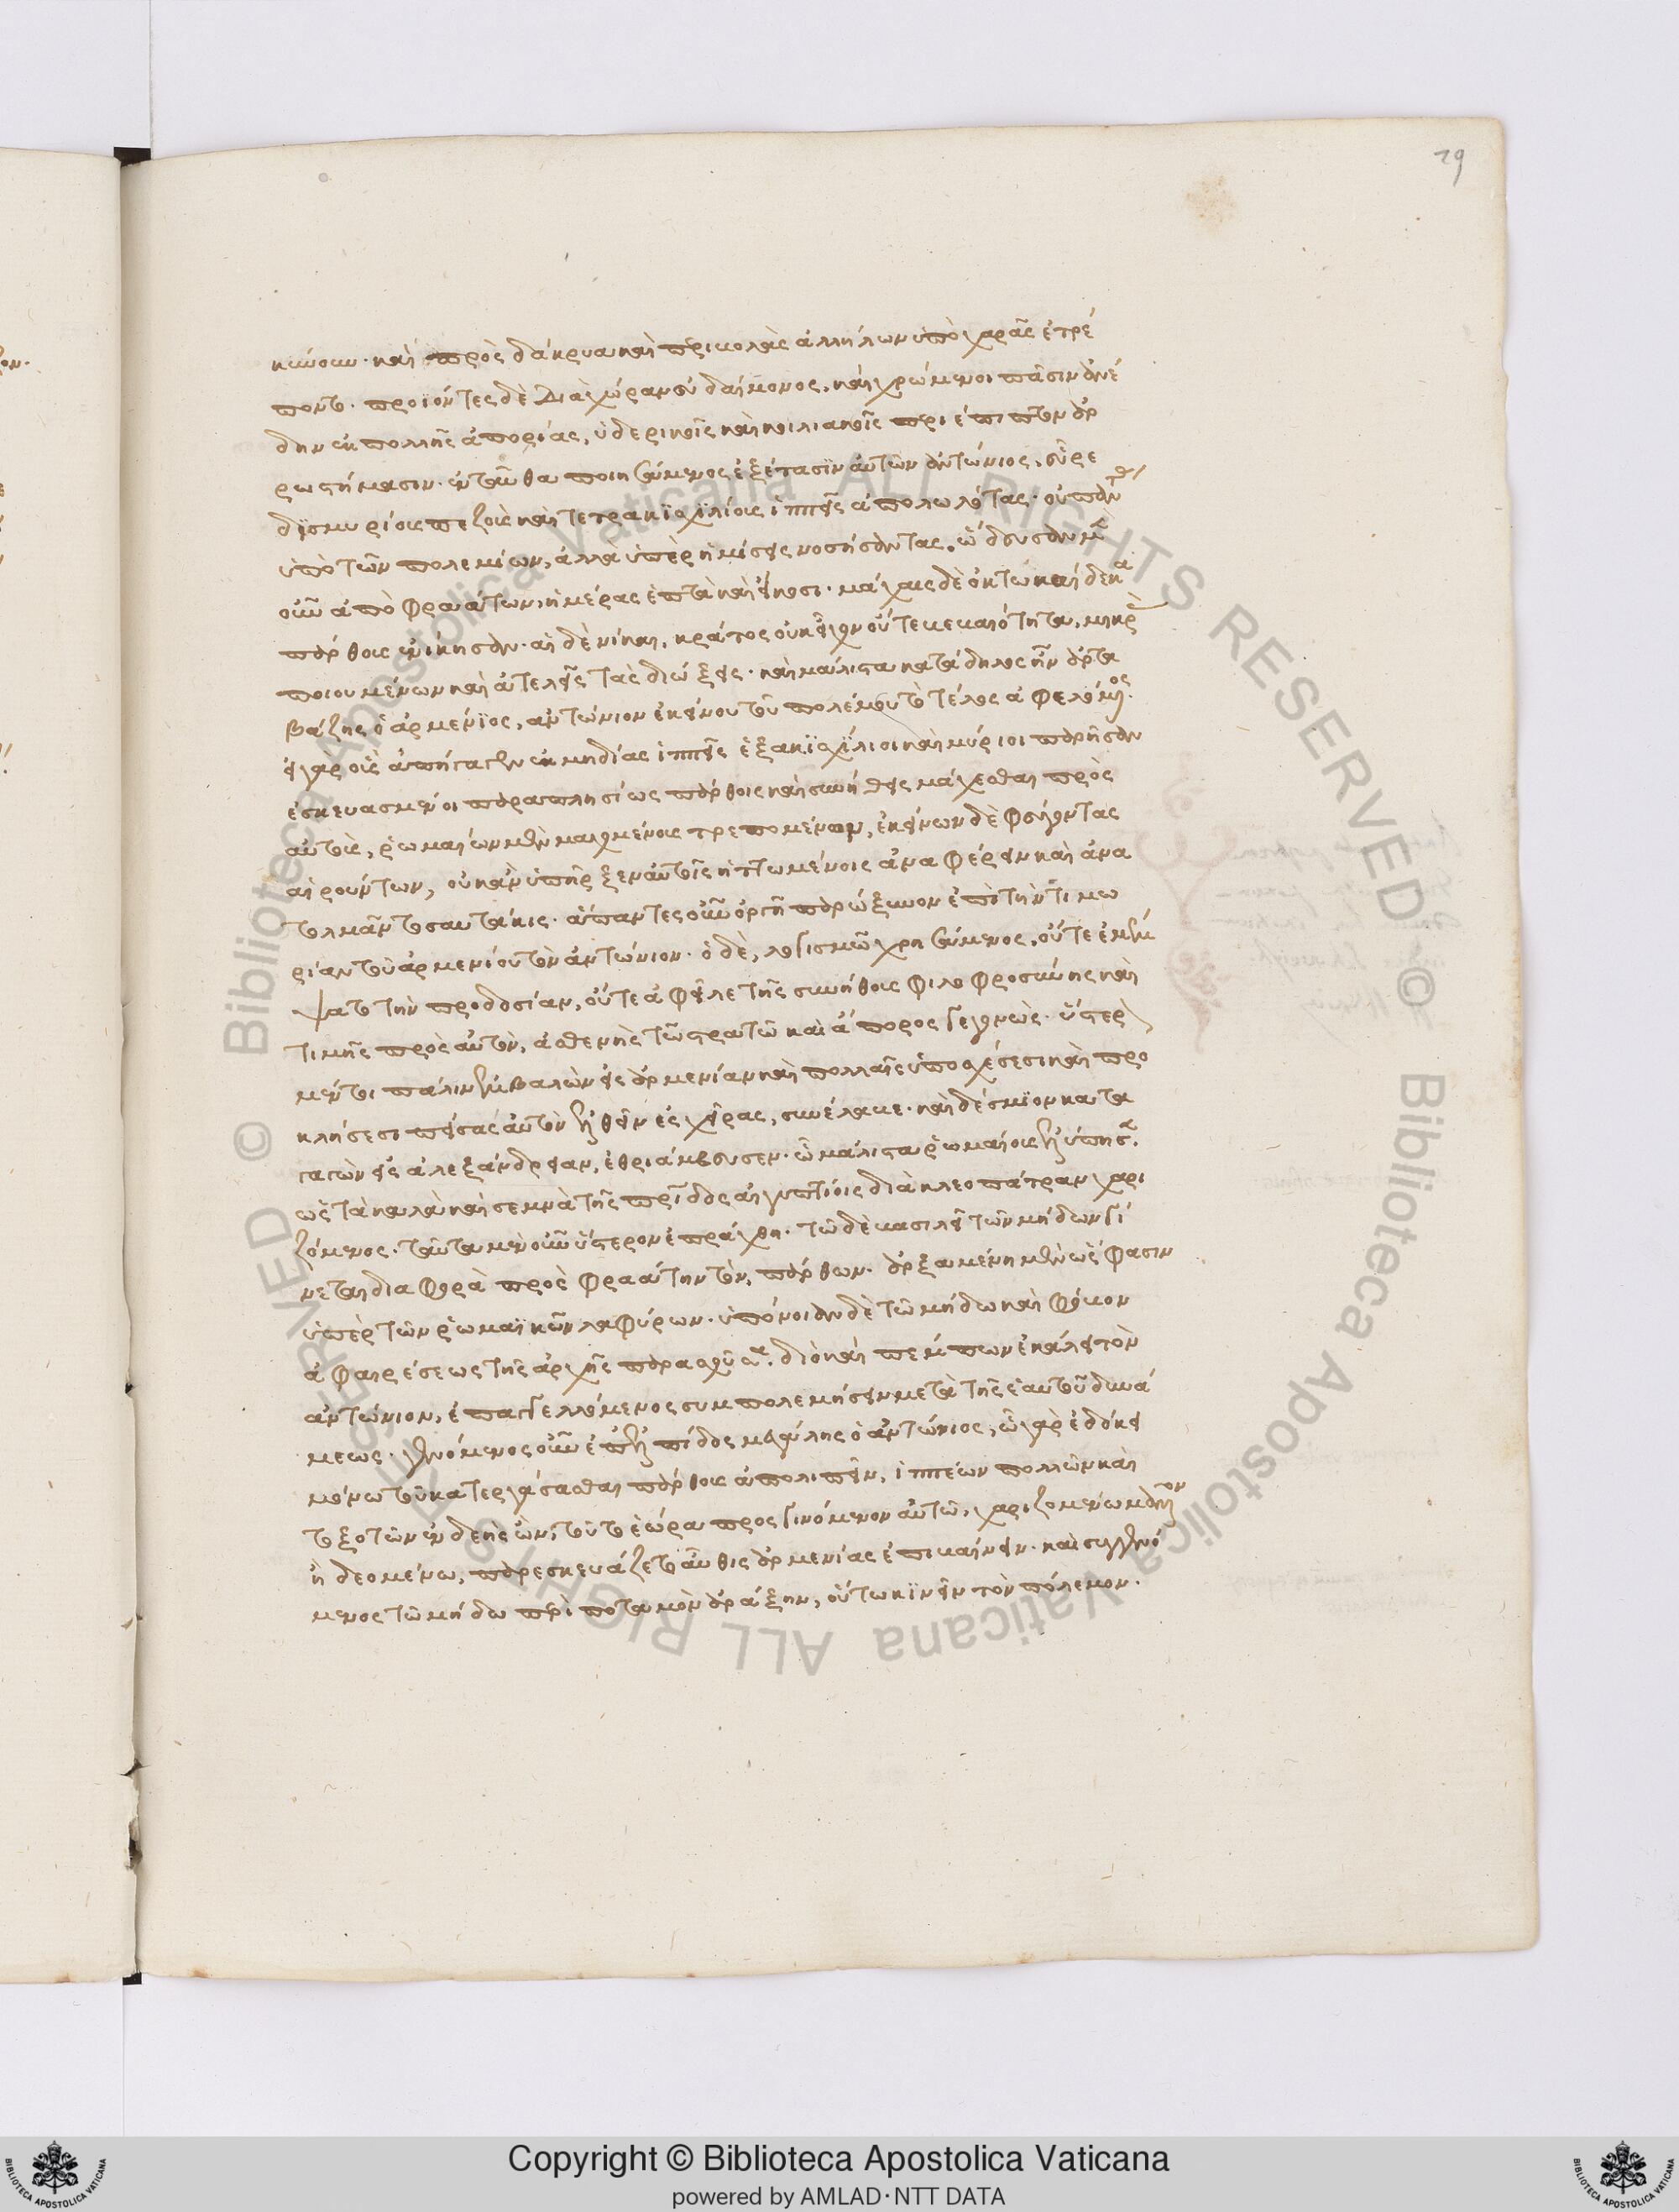 κύνουν· καὶ πρὸς δάκρυα καὶ περιβολὰς ἀλλήλων ὑπὸ χαρᾶς ἐτρέ
ποντο. προϊόντες δὲ διὰ χώρας εὐδαίμονος, καὶ χρώμενοι πᾶσιν ἀνέ
δην ἐκ πολλῆς ἀπορίας, ὑδερικοῖς καὶ κοιλιακοῖς περιέπιπτον ἀρ
ρωστήμασιν. ἐνταῦθα ποιησάμενος ἐξέτασιν αὐτῶν ἀντώνιος, εὗρε
δϊσμυρίους πεζοὺς καὶ τετρακϊσχϊλίους ἱππεῖς ἀπολωλότας· οὐ πάντας
ὑπὸ τῶν πολεμίων, ἀλλὰ ὑπὲρ ἡμίσεις νοσήσαντας. ὥδευσαν μὲν
οὖν ἀπὸ φραάτων ἡμέρας ἑπτὰ καὶ εἴκοσι. μάχαις δὲ ὀκτωκαίδεκα
πάρθους ἐνίκησαν. αἱ δὲ νίκαι, κράτος οὐκ εἶχον οὔτε βεβαιότητα, μικρὰς
ποιουμένων καὶ ἀτελεῖς τὰς διώξεις. καὶ μάλιστα κατάδηλος ἦν ἀρτα
βάζης ὁ ἀρμένϊος, ἀντώνιον ἐκείνου τοῦ πολέμου τὸ τέλος ἀφελόμενος.
εἰ γὰρ οὓς ἀπήγαγεν ἐκ μηδίας ἱππεῖς ἑξακϊσχίλιοι καὶ μύριοι παρῆσαν
ἐσκευασμένοι παραπλησίως πάρθοις καὶ συνήθεις μάχεσθαι πρὸς
αὐτοὺς, ῥωμαίων μὲν μαχομένους τρεπομένων, ἐκείνων δὲ φεύγοντας
αἱρούντων, οὐκ ἂν ὑπῆρξεν αὐτοῖς ἡττωμένοις ἀναφέρειν καὶ ἀνα
τολμᾶν τοσαυτάκις. ἅπαντες οὖν ὀργῇ παρώξυνον ἐπὶ τὴν τιμω
ρίαν τοῦ ἀρμενίου τὸν ἀντώνιον. ὁ δὲ, λογισμῶ χρησάμενος, οὔτε ἐμέμ
ψατο τὴν προδοσίαν, οὔτε ἀφεῖλε τῆς συνήθους φιλοφροσύνης καὶ
τιμῆς πρὸς αὐτὸν, ἀσθενὴς τῶ στρατῶ καὶ ἄπορος γεγονώς. ὕστερον
μέντοι πάλιν ἐμβαλὼν εἰς ἀρμενίαν καὶ πολλαῖς ὑποσχέσεσι καὶ προ
κλήσεσι πείσας αὐτὸν ἐλθεῖν ἐς χεῖρας, συνέλαβε. καὶ δέσμϊον κατα
γαγὼν εἰς ἀλεξάνδρειαν, ἐθριάμβευσεν. ὧ μάλιστα ῥωμαίους ἐλύπησεν.
ὡς τὰ καλὰ καὶ σεμνὰ τῆς πατρίδος αἰγυπτίοις διὰ κλεοπάτραν χαρι
ζόμενος. ταῦτα μὲν οὖν ὕστερον ἐπράχθη. τῶ δὲ βασιλεῖ τῶν μήδων γί
νεται διαφορὰ πρὸς φραάτην τὸν πάρθων. ἀρξαμένη μὲν ὥς φασιν
ὑπὲρ τῶν ῥωμαϊκῶν λαφύρων. ὑπόνοιαν δὲ τῶ μήδω καὶ φόβον
ἀφαιρέσεως τῆς ἀρχῆς παρασχοῦσα. διὸ καὶ πέμπων ἐκάλει τὸν
ἀντώνιον, ἐπαγγελλόμενος συμπολεμήσειν μετὰ τῆς ἑαυτοῦ δυνά
μεως. γενόμενος οὖν ἐπ' ἐλπίδος μεγάλης ὁ ἀντώνιος, ὧ γὰρ ἐδόκει
μόνω τοῦ κατεργάσασθαι πάρθους ἀπολιπεῖν, ἱππέων πολλῶν καὶ
τοξοτῶν ἐνδεὴς ὢν, τοῦτο ἑώρα προσγινόμενον αὐτῶ, χαριζομένω μᾶλλον
ἢ δεομένω, παρεσκευάζετο αὖθις ἀρμενίας ἐπιβαίνειν. καὶ συγγενό
μενος τῶ μήδω περὶ ποταμὸν ἀράξην, οὕτω κϊνεῖν τὸν πόλεμον.
29
© Biblioteca Apostolica Vaticana ALL RIGHTS RESERVED © Biblioteca Apostolica Vaticana ALL RIGHTS RESERVED
Copyright © Biblioteca Apostolica Vaticana
powered by AMLAD·NTT DATA
BIBLIOTECA APOSTOLICA VATICANA
BIBLIOTECA APOSTOLICA VATICANA